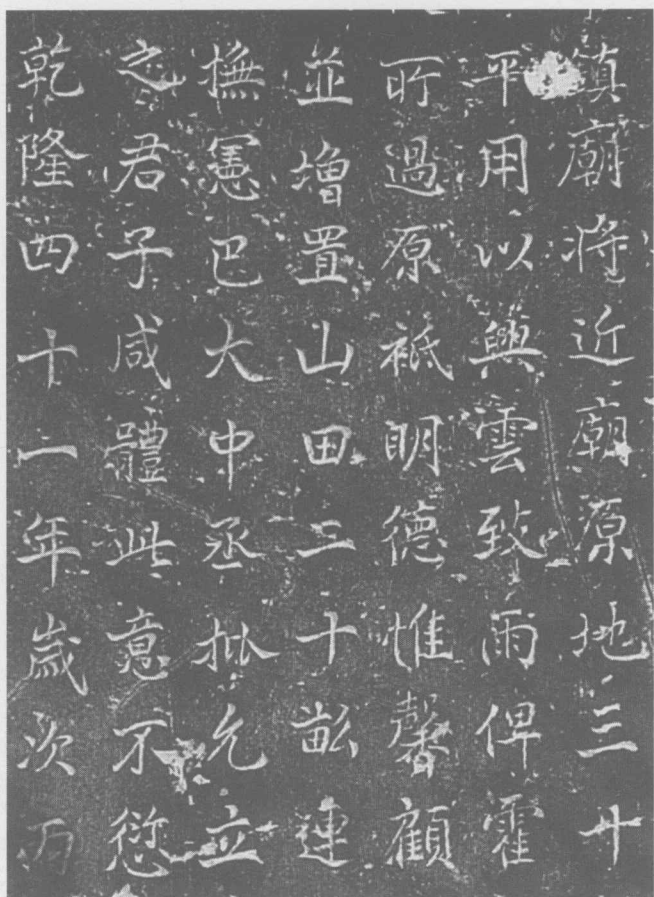 鎮廟将近廟源地三廿
平用以興雲致雨俾霍
所過原祗明德惟馨顧
並增置山田二十畝連
撫憲巴大中丞批允立
之君子咸體此意不愆
乾隆四十一年歲次丙